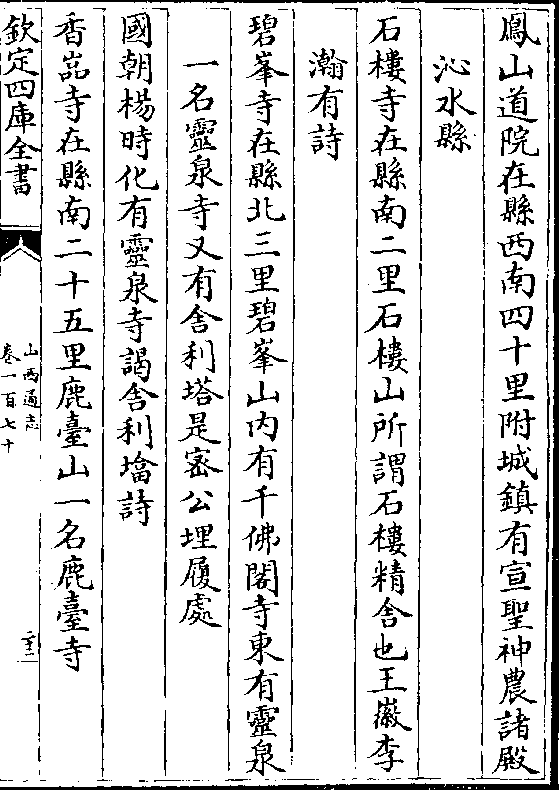 鳳山道院在縣西南四十里附城鎮有宣聖神農諸殿
沁水縣
石樓寺在縣南二里石樓山所謂石樓精舍也王徽李
瀚有詩
碧峯寺在縣北三里碧峯山内有千佛閣寺東有靈泉
一名靈泉寺又有舍利塔是密公埋履處
國朝楊時化有靈泉寺謁舍利墖詩
香嵓寺在縣南二十五里鹿臺山一名鹿臺寺
欽定四庫全書
山西通志
卷一百七十